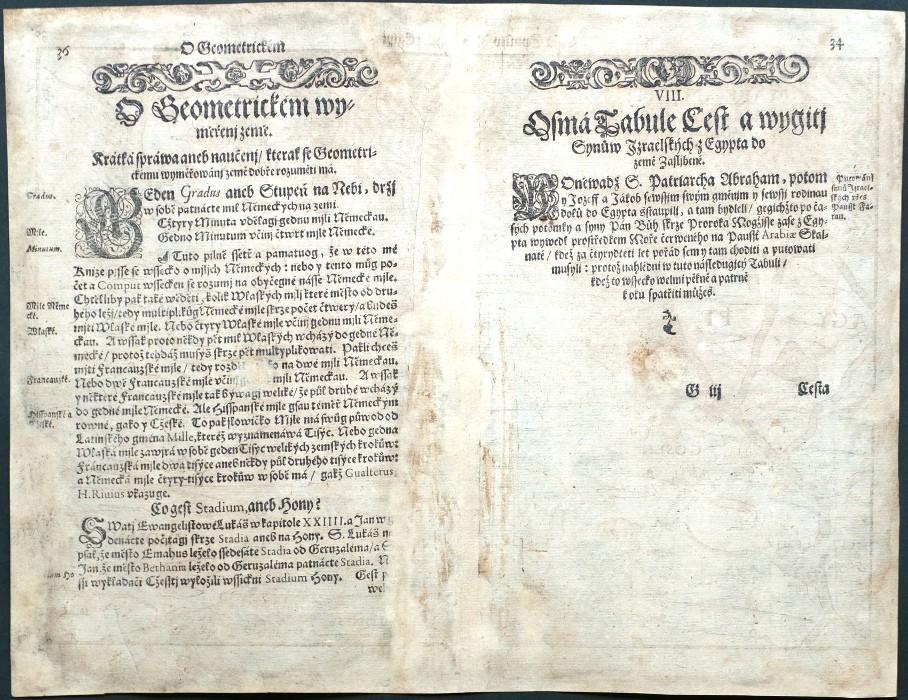 36
O Geometrickém
O Geometrickém wy-
měřenj země.
Krátká spráwa aneb naučenj/ kterak se Geometri-
ckému wyměřowánj země dobře rozuměti má.
Gradus.
JEden Gradus aneb Stupeň na Nebi, držj
w sobě patnácte mil Německých na zemi.
Cžtyry Minuta wdělagj gednu mjli Německau.
Mjle.
Gedno Minutum včinj čtwrt mjle Německé.
Minutum.
A Tuto pilně ssetř a pamatug, že w této mé
Knize pjsse se wssecko o mjljch Německých: nebo y tento můg po-
čet a Comput wssecken se rozumj na obyčegné násse Německé mjle.
Chtělliby pak také wěděti, kolik Wlaských mjlj které město od dru-
Mjle Něme
cké.
hého ležj/ tedy multiplikůg Německé mjle skrze počet čtwerý/ a budeš
mjti Wlaské mjle. Nebo čtyry Wlaské mjle včinj gednu mjli Něme-
Wlaské.
ckau. A wssak proto někdy pět mil Wlaských wcházý do gedné Ně-
mecké/ protož tehdáž musýš skrze pět multyplikowati. Pakli chceš
mjti Francauzské mjle/ tedy rozd ko na dwě mjli Německau.
Francauzské.
Nebo dwě Francauzské mjle včin mjli Německau. A wssak
y některé Francauzské mjle tak býwagj weliké/ že půl druhé wcházý
do gedné mjle Německé. Ale Hisspanské mjle gsau téměř Německým
Hisspanské a
Cžeské.
rowné, gako y Cžeské. To pak slowjčko Mjle má swůg půwod od
Latinského gména Mille, kteréž wyznamenáwá Tisýc. Nebo gedna
Wlaská mjle zawjrá w sobě geden Tisýc welikých zemských krokůw:
Francauzská mjle dwa tisýce aneb někdy půl druhého tisýce krokůw:
a Německá mjle čtyry tisýce krokůw w sobě má/ gakž Gualterus
H. Riuius vkazuge.
Co gest Stadium, aneb Hony?
SWatj Ewangelistowé Lukáš w kapitole XXIIII. a Jan w g
denácté počjtagj skrze Stadia aneb na Hony. S. Lukáš
psal, že město Emahus leželo ssedesáte Stadia od Geruzaléma/ a S
Jan. že město Bethania leželo od Geruzaléma patnácte Stadia. N
ssi wykladači Cžesstj wyložili wssickni Stadium Hony. Gest p
we
34
VIII.
Osmá Tabule Cest a wygitj
Synůw Jzraelských z Egypta do
země Zaslíbené.
POněwadž S. Patriarcha Abraham, potom
Putowánj
synů Jzrael-
ských přes
Paussť Fa-
ran.
y Jozeff a Jákob sewssjm swým gměnjm y sewssj rodinau
dolů do Egypta sstaupili, a tam bydleli/ gegichžto po ča-
sých potomky a syny Pán Bůh skrze Proroka Mogžjsse zase z Egy-
pta wywedl prostředkem Moře čerweného na Paussť Arabiæ Skal-
naté/ kdež za čtyrydceti let pořád sem y tam choditi a putowati
musyli: protož nahlédni w tuto následugjcý Tabuli/
kdež to wssecko welmi pěkně a patrně
k oku spatřiti můžeš.
G iij
Cesta